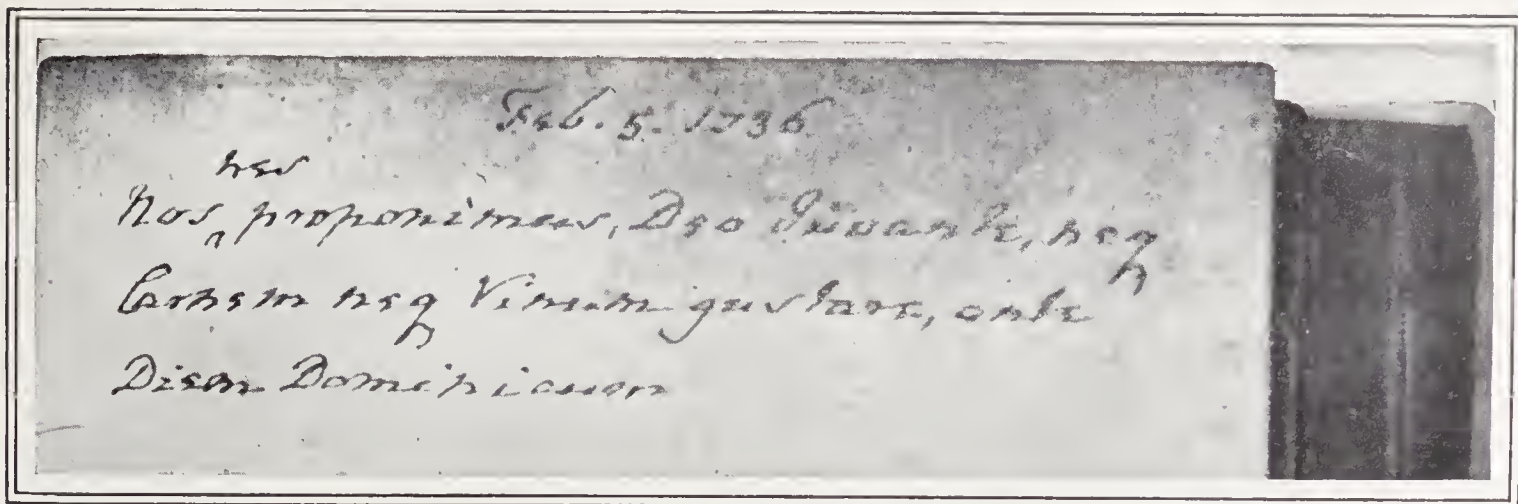 Feb. 5. 1736
hos
Nos proponimus, Deo Juvante, neq
Carnem neq Vinum gustare, ante
Diem Dominicum